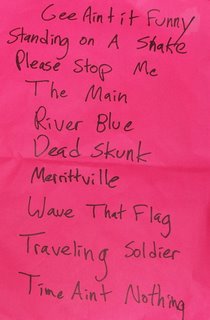 Gee Aint it Funny
Standing on A Snake
Please Stop Me
The Main
River Blue
Dead Skunk
Merrittville
Wave That Flag
Traveling Soldier
Time Aint Nothing